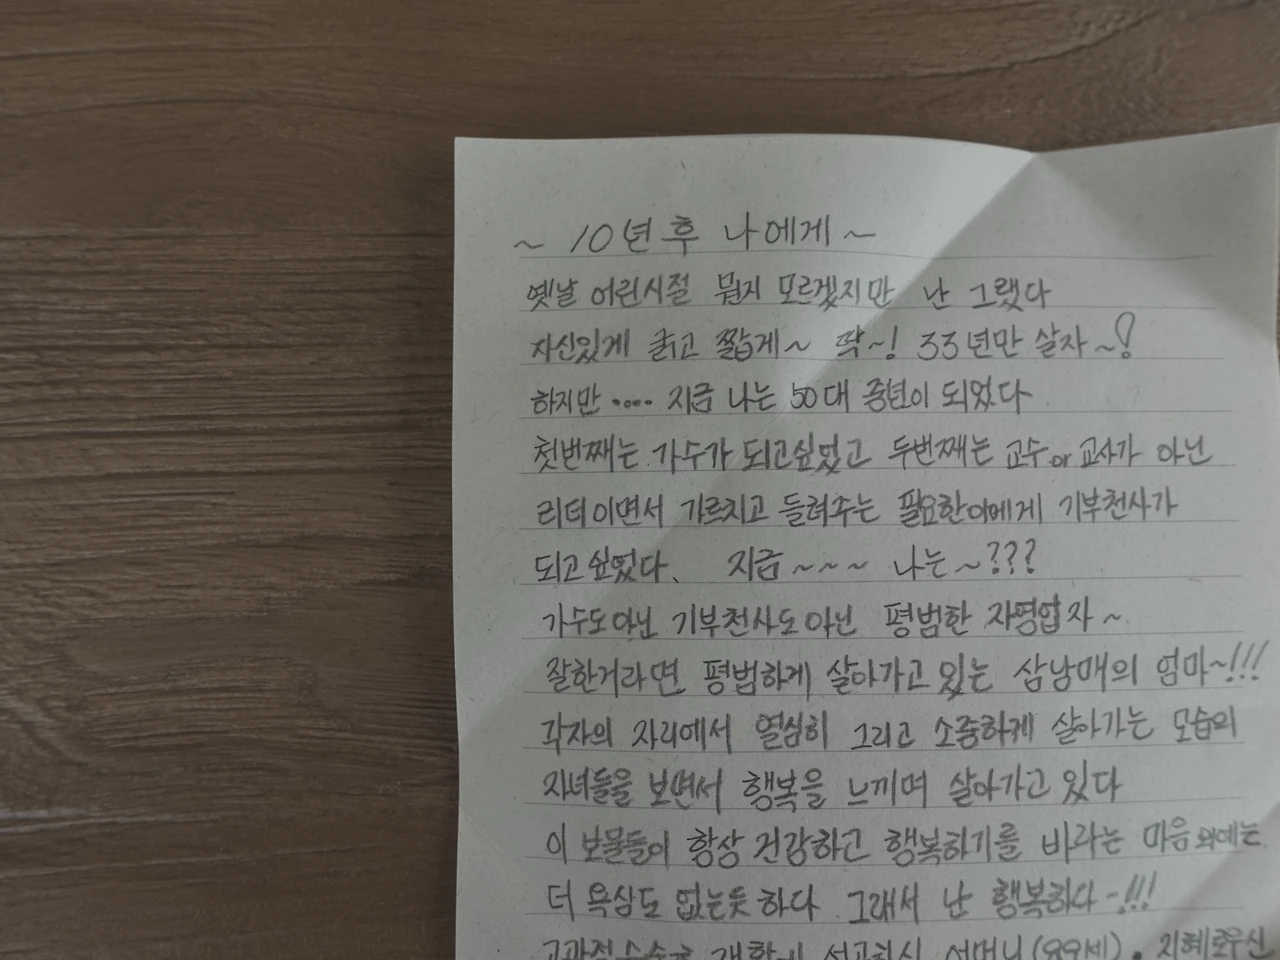 ~ 10년후 나에게 ~
옛날 어린시절 뭔지 모르겠지만 난 그랬다
자신있게 굵고 짧게~ 딱~! 33년만 살자~!
하지만 .... 지금 나는 50대 중년이 되었다
첫번째는 가수가 되고싶었고 두번째는 교수or교사가 아닌
리더이면서 가르치고 들려주는 필요한이에게 기부천사가
되고싶었다. 지금~~~ 나는~???
가수도아닌 기부천사도아닌 평범한 자영업자~
잘한거라면 평범하게 살아가고있는 삼남매의 엄마~!!!
각자의 자리에서 열심히 그리고 소중하게 살아가는 모습의
자녀들을 보면서 행복을 느끼며 살아가고 있다
이 보물들이 항상 건강하고 행복하기를 바라는 마음외에는
더 욕심도 없는듯 하다 그래서 난 행복하다~!!!
어머니(89세). 지혜로우신